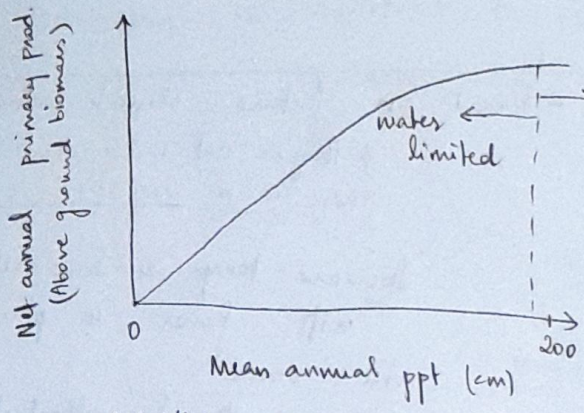 Net annual primary prod.
(Above ground biomass)
water
limited
0
200
Mean annual ppt (cm)